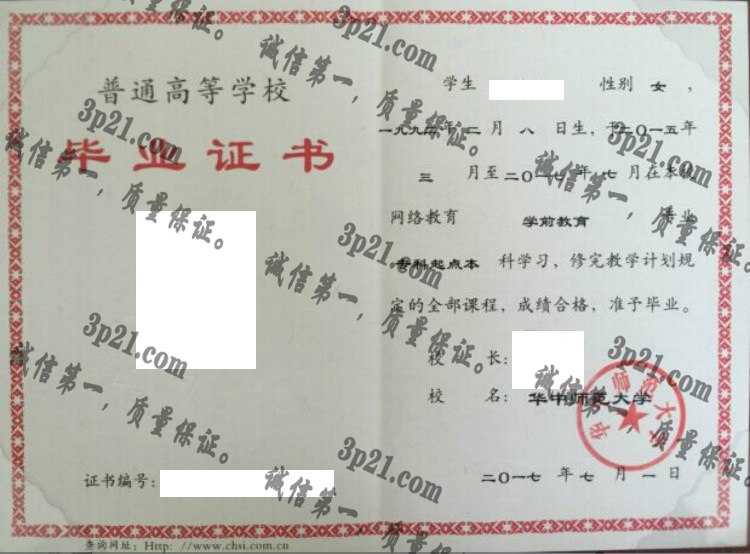 普通高等学校
毕业证书
证书编号:
查询网址: Http: //www.chsi.com.cn
学生 性别 女 ,
一九九二年 二 月 八 日生, 于二〇一五年
三 月至二〇一七年 七 月在本校
网络教育 学前教育 专业
专科起点本 科学习, 修完教学计划规
定的全部课程, 成绩合格, 准予毕业。
校 长:
校 名: 华中师范大学
二〇一七 年 七 月 一 日
华中师范大学
3p21.com
诚信第一,质量保证。
3p21.com
诚信第一,质量保证。
3p21.com
诚信第一,质量保证。
3p21.com
诚信第一,质量保证。
3p21.com
诚信第一,质量保证。
3p21.com
诚信第一,质量保证。
3p21.com
诚信第一,质量保证。